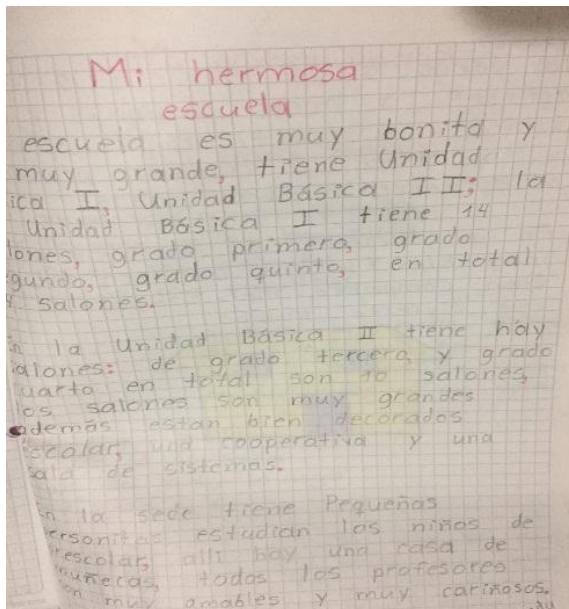 Mi hermosa
escuela
escuela es muy bonita y
muy grande, tiene Unidad
ica I, Unidad Básica II; la
Unidad Básica I tiene 14
lones, grado primero, grado
gundo, grado quinto, en total
salones.
la Unidad Básica II tiene hay
alones: de grado tercero, y grado
uarto en total son 10 salones,
los salones son muy grandes
ademas estan bien decorados
escolar, una cooperativa y una
sala de sistemas.
En la sede tiene Pequeñas
ersonitas estudian los niños de
rescolar, alli hay una casa de
muñecas, todos los profesores
on muy amables y muy cariñosos.